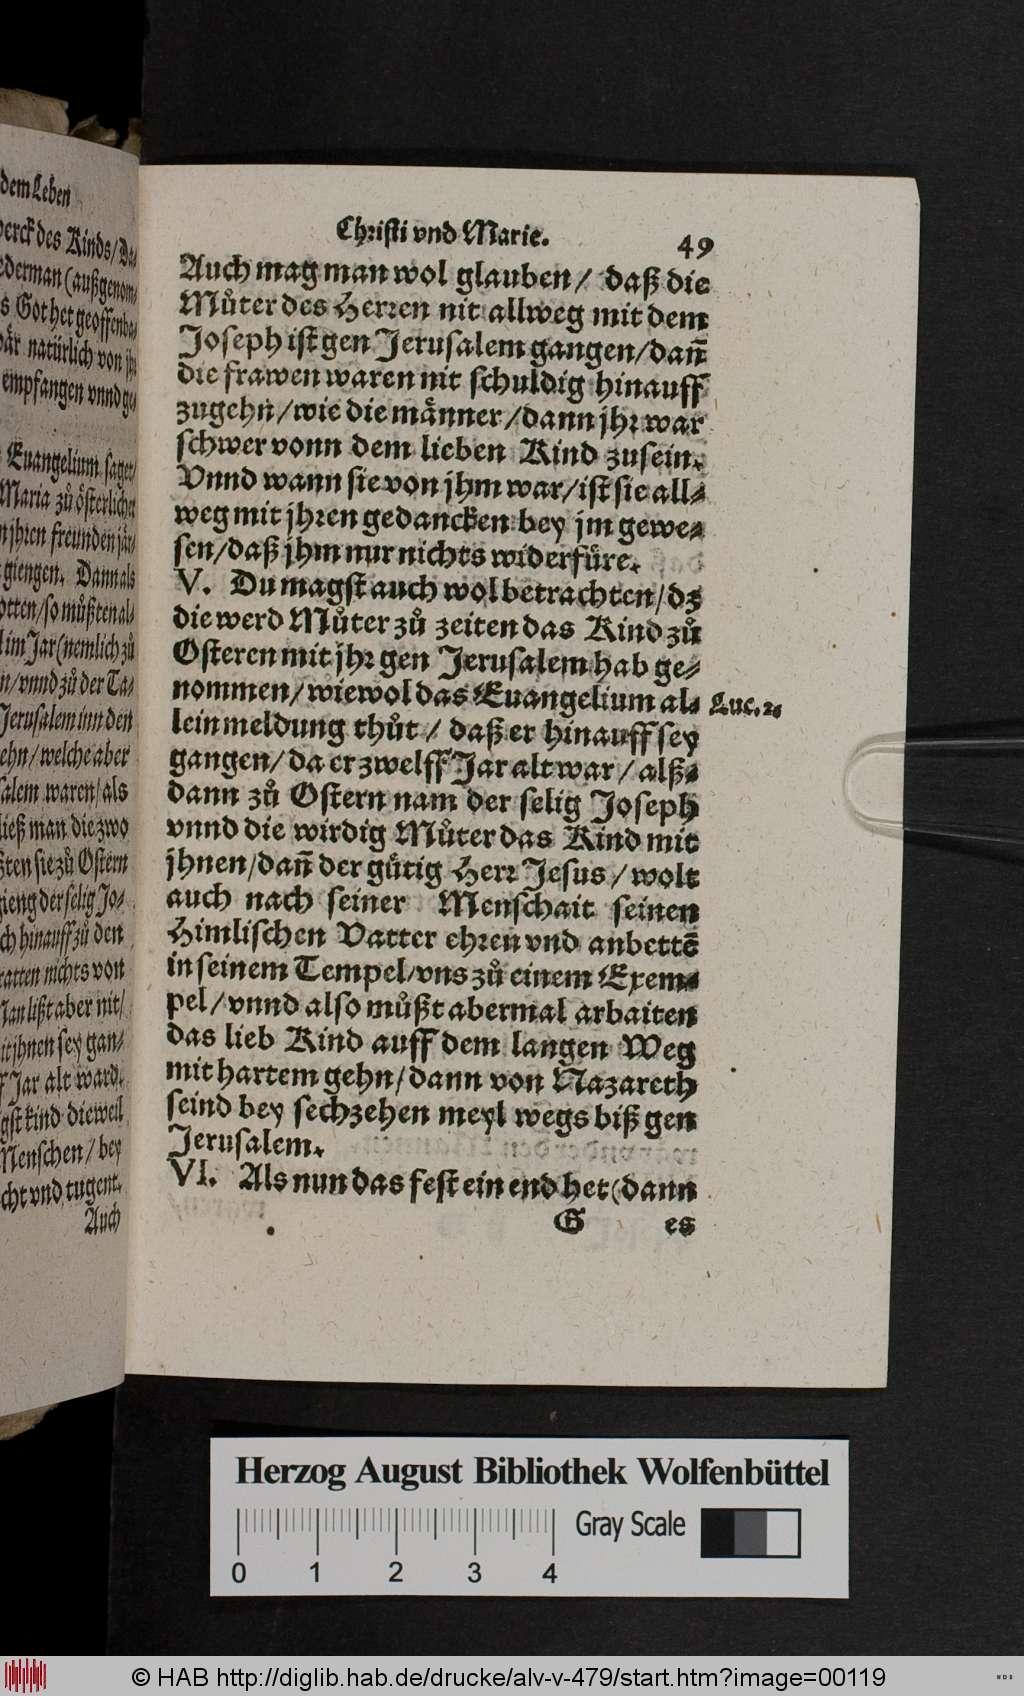 dem Leben
werck des Kinds/ Da-
ederman (außgenom-
s Got het geoffenba-
wär natürlich von jhr
empfangen vnnd ge-
Euangelium saget/
Maria zů österlicher
n jhren freunden jär-
giengen. Dann als
otten/ so můßten al-
l im Jar (nemlich zů
n/ vnnd zů der Ta-
Jerusalem inn den
ehn/ welche aber
salem waren/ als
ließ man die zwo
ßten sie zů Ostern
gieng der selig Jo-
ch hinauff zů den
ratten nichts von
Man lißt aber nit/
it jhnen sey gan-
ff Jar alt ward.
gst kind dieweil
Menschen/ bey
cht vnd tugent.
Auch
Christi vnd Marie. 49
Auch mag man wol glauben/ daß die
Můter des Herren nit allweg mit dem
Joseph ist gen Jerusalem gangen/ dañ
die frawen waren nit schuldig hinauff
zugehn/ wie die männer/ dann jhr war
schwer vonn dem lieben Kind zusein.
Vnnd wann sie von jhm war/ ist sie all-
weg mit jhren gedancken bey jm gewe-
sen/ daß jhm nur nichts widerfüre.
V. Du magst auch wol betrachten/ dz
die werd Můter zů zeiten das Kind zů
Osteren mit jhr gen Jerusalem hab ge-
nommen/ wiewol das Euangelium al- Luc. 2.
lein meldung thůt/ daß er hinauff sey
gangen/ da er zwelff Jar alt war/ alß-
dann zů Ostern nam der selig Joseph
vnnd die wirdig Můter das Kind mit
jhnen/ dañ der gütig Herr Jesus/ wolt
auch nach seiner Menschait seinen
Himlischen Vatter ehren vnd anbettē
in seinem Tempel/ vns zů einem Exem-
pel/ vnnd also můßt abermal arbaiten
das lieb Kind auff dem langen Weg
mit hartem gehn/ dann von Nazareth
seind bey sechzehen meyl wegs biß gen
Jerusalem.
VI. Als nun das fest ein end het (dann
G es
Herzog August Bibliothek Wolfenbüttel
Gray Scale
0 1 2 3 4
© HAB http://diglib.hab.de/drucke/alv-v-479/start.htm?image=00119